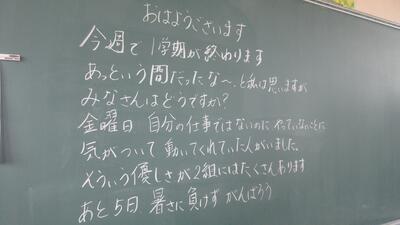 おはようございます
今週で1学期が終わります
あっという間だったな〜、と私は思いますが
みなさんはどうですか？
金曜日 自分の仕事ではないのに やっていないことに
気がついて 動いてくれていた人がいました。
そういう優しさが2組にはたくさんあります
あと5日 暑さに負けず がんばろう